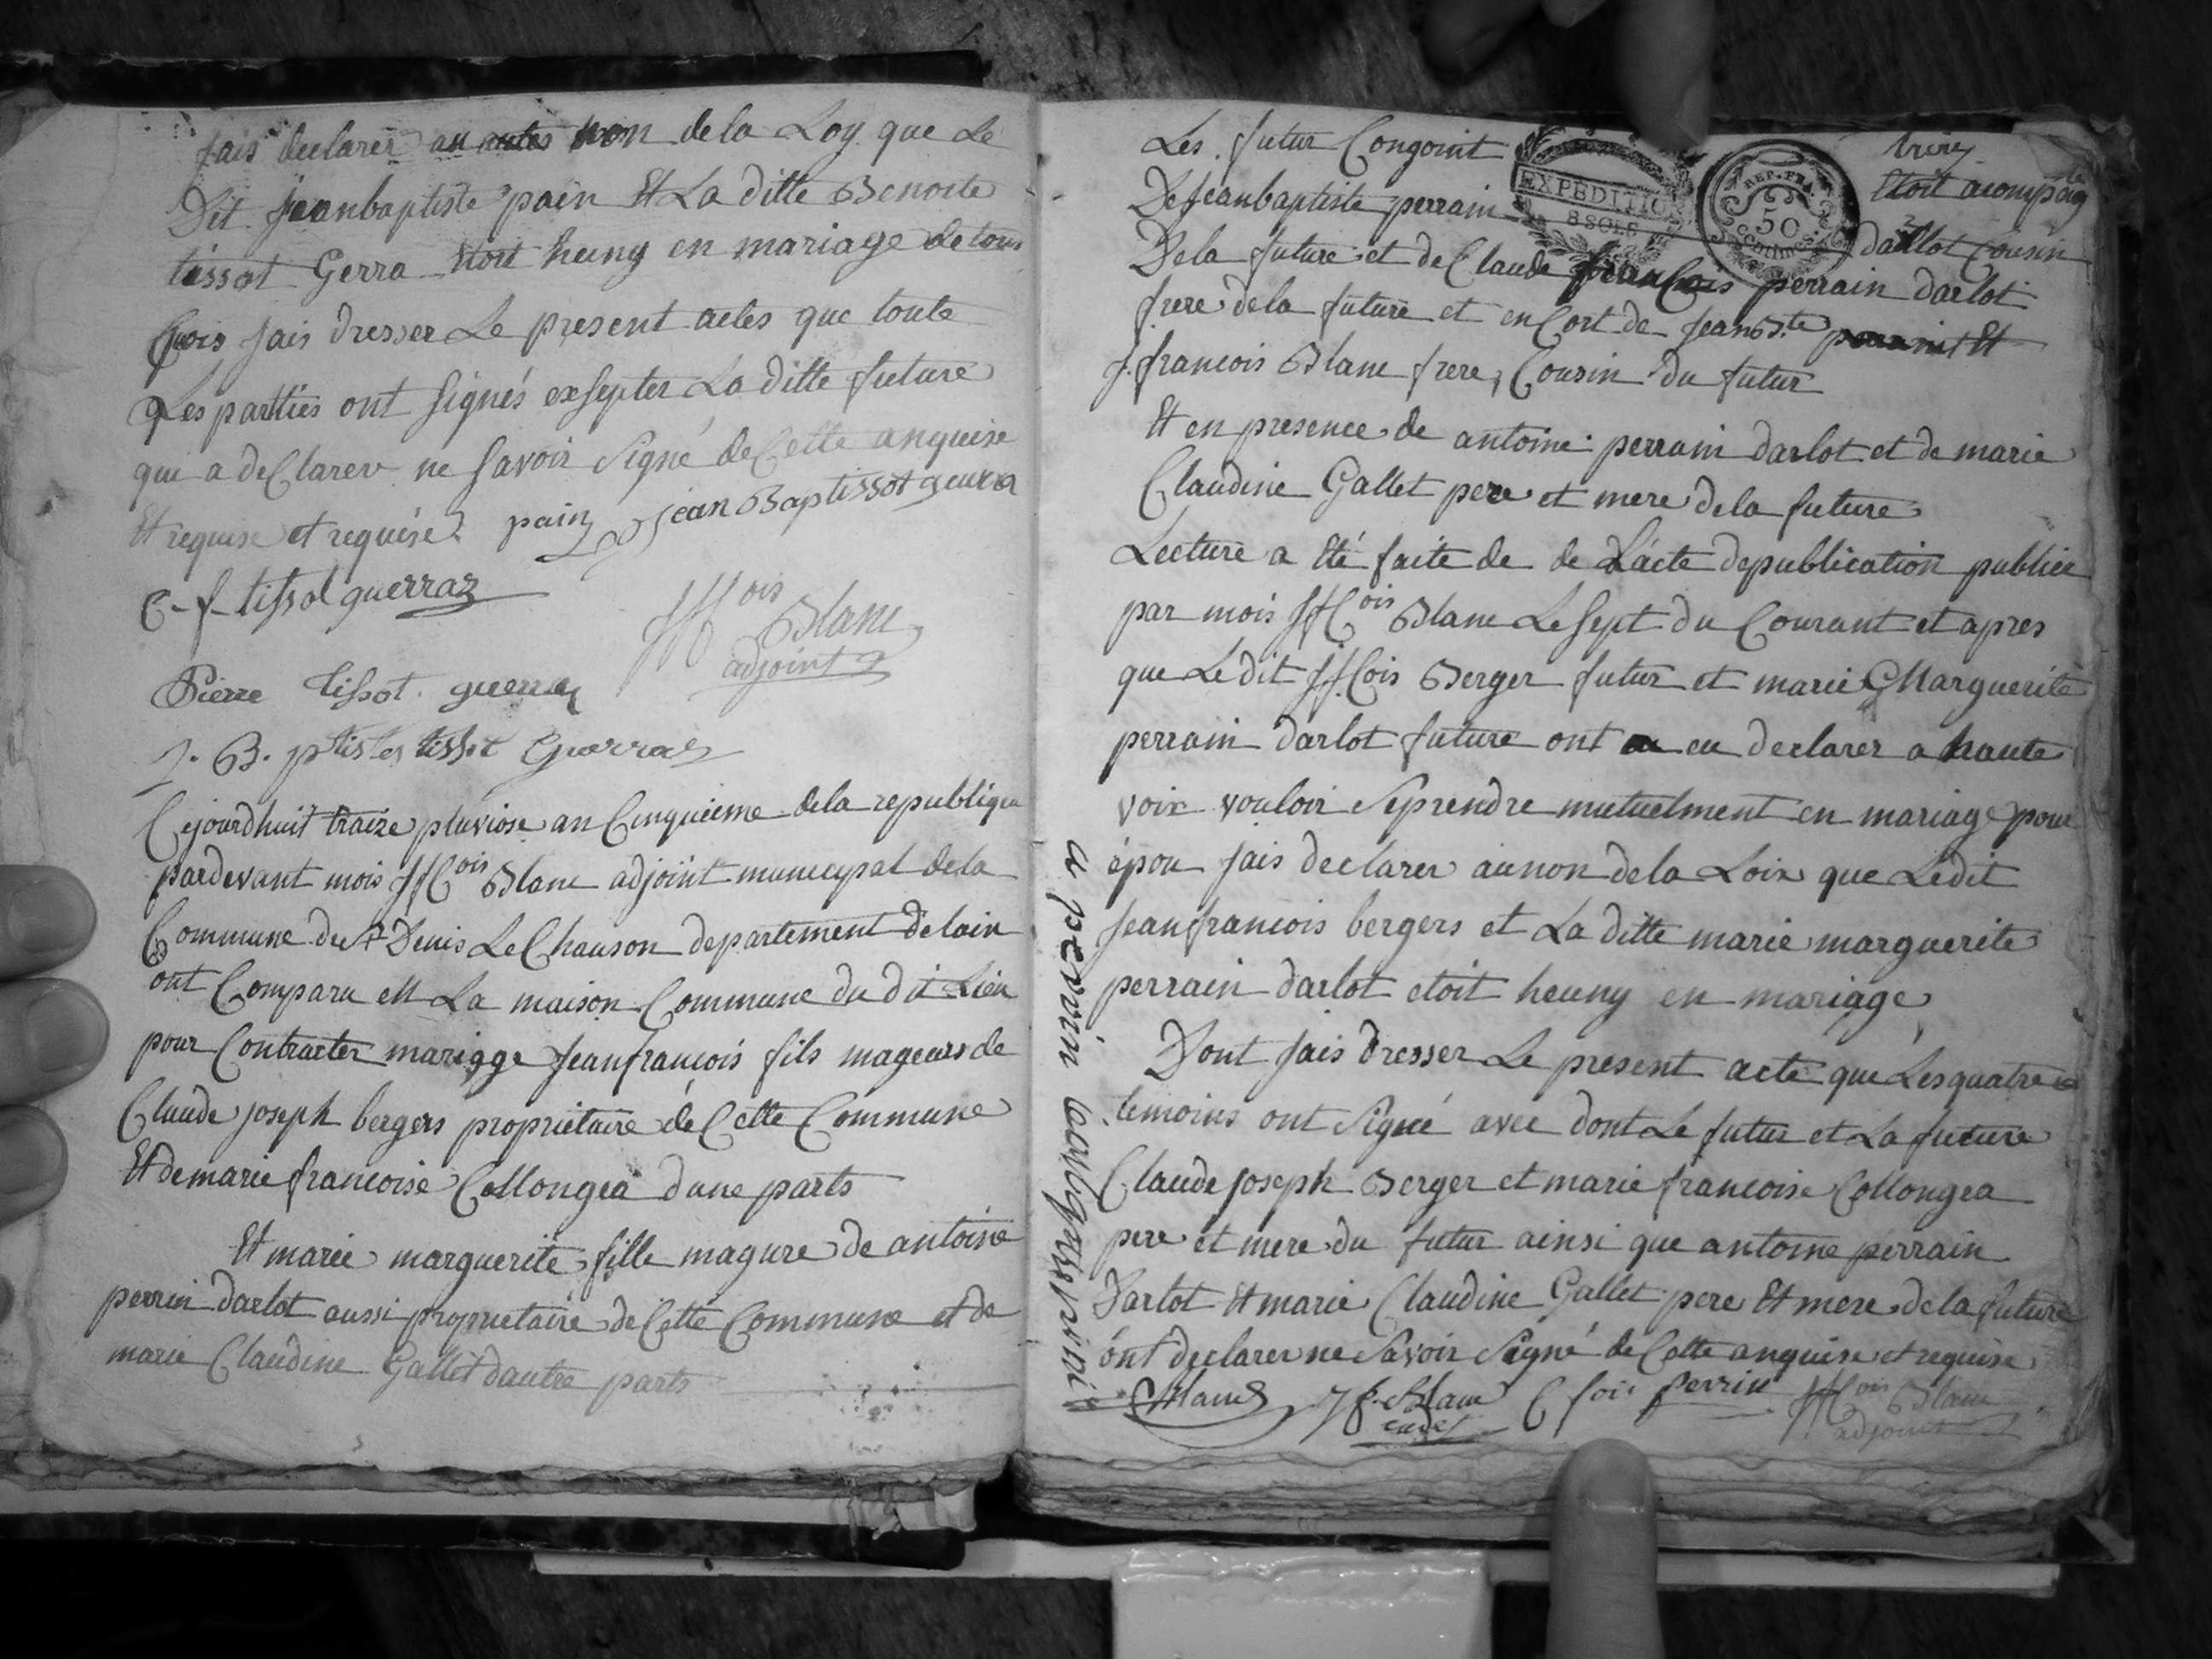 jais declarer au non de la Loy que Le
Dit jeanbaptiste pain Et La ditte Benoite
tissot Gerra Etoit heuny en mariage de tous
Quois jais dresser Le present actes que toute
Les partties ont signés exsepter La ditte future
qui a deClarer ne savoir Signé de Cette anquise
Et requise et requise pain jean Baptissot guerra
C-f- tissot guerraz
JfCois Blanc
adjoint
Pierre tissot guerraz
J. B. ptistes tissot Guerraz
Cejourdhuit traize pluviose an Cinquieme dela republique
pardevant mois JfCois Blanc adjoint municypal dela
Commune de St Denis Le Chauson departement delain
ont Comparu en La maison Commune du dit Lieu
pour Contracter mariage jeanfrancois fils mageurs de
Claude joseph bergers proprietaire de Cette Commune
Et de marie francoise Collongea dune parts
Et marie marguerite fille magure de antoine
perrin darlot aussi proprietaire de Cette Commune et de
marie Claudine Gallet dautre parts
Les futur Congoint
Etoit acompag
De jeanbaptiste perrain darlot Cousin
EXPEDITION
8 SOLS
REP. FRA.
50
centimes
Dela future et de Claude francois perrain darlot
frere dela future et en Cort de jean Bte Et
J. francois Blanc frere, Cousin du futur
Et en presence de antoine perrain darlot et de marie
Claudine Gallet pere et mere dela future
Lecture a Eté faite de de Lacte depublication publiée
par mois JfCois Blanc Le sept du Courant et apres
que Ledit JfCois Berger futur et marie Marguerite
perrain darlot future ont eu declarer a haute
voix vouloir Seprendre mutuelment en mariage pour
épou jais declarer aunon dela Loix que Ledit
jeanfrancois bergers et La ditte marie marguerite
perrain darlot etoit heuny en mariage
Dont jais dresser Le present acte que Lesquatre
temoins ont Signé avec dont Le futur et La future
Claude joseph Berger et marie francoise Collongea
pere et mere du futur ainsi que antoine perrain
Darlot Et marie Claudine Gallet pere Et mere dela future
ont declarer ne Savoir Signé de Cette anquise et requise
Blanc J f. Blanc C fois perrin JfCois Blanc
cadet adjoint
a perrin